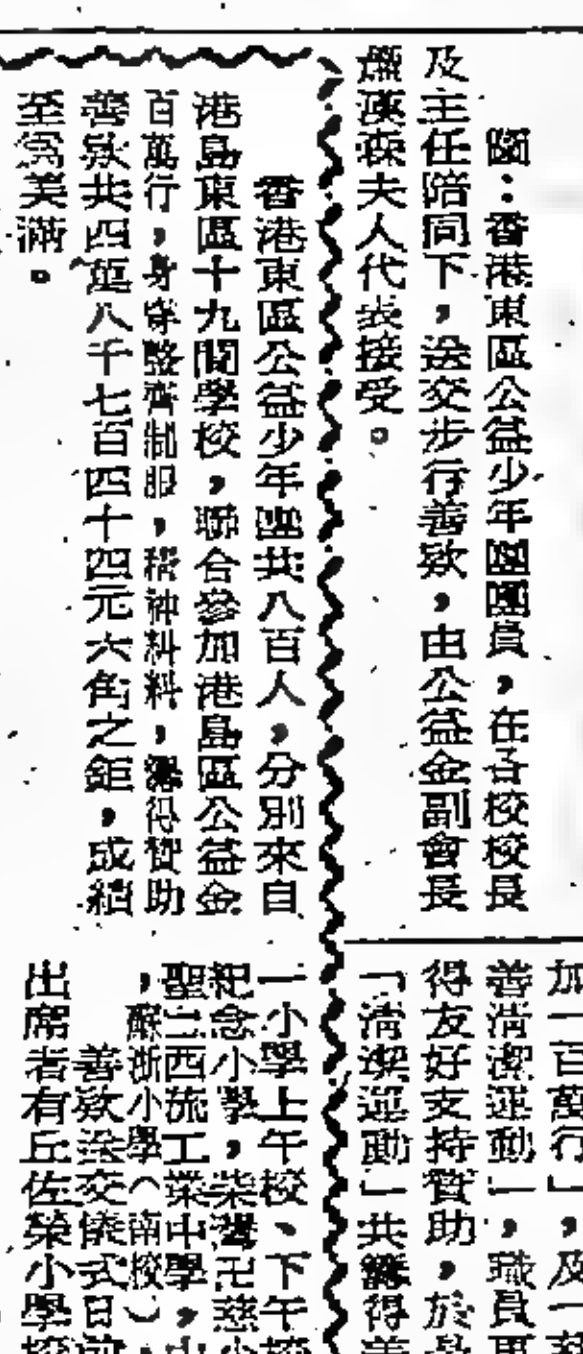 圖：香港東區公益少年團團員，在各校校長
及主任陪同下，送交步行善欵，由公益金副會長
夫人代表接受。
香港東區公益少年團共八百人，分別來自
港島東區十九間學校，聯合參加港島區公益金
百萬行，身穿整齊制服，精神料料，籌得贊助
善欵共四萬八千七百四十四元六角之鉅，成績
至為美滿。
加一百萬行」，及一
善清潔運動」，職員更
得友好支持贊助，於
「清潔運動」共籌得善
一小學上午校、下午校
紀念小學，柴灣卍慈小
聖方濟工業中學，
，蘇浙小學（南校）
善欵送交儀式日前
出席者有丘佐榮小學校